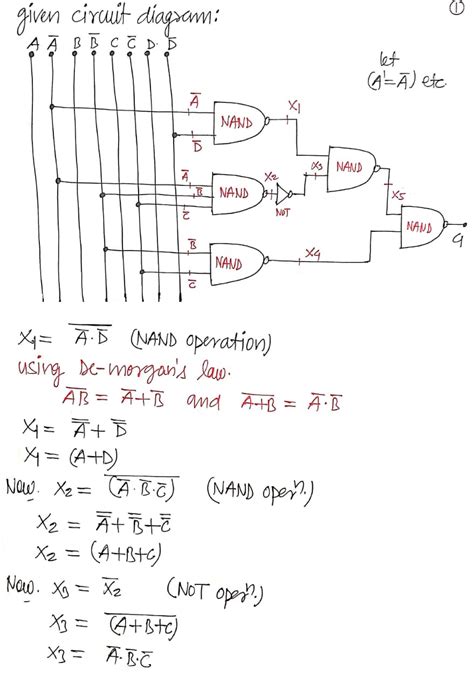 given circuit diagram: ①
A A̅ B B̅ C C̅ D D̅
let
(A'=A̅) etc.
A̅ NAND X1
D̅
A̅ X2 X3 NAND
B̅ NAND NOT X5
C̅ NAND G
B̅ NAND X4
C̅
X1 = \overline{A̅·D̅} (NAND operation)
using De-morgan's law.
\overline{AB} = A̅+B̅ and \overline{A+B} = A̅·B̅
X1 = A̿ + D̿
X1 = (A+D)
Now. X2 = \overline{(A̅·B̅·C̅)} (NAND oper^n.)
X2 = A̿+B̿+C̿
X2 = (A+B+C)
Now. X3 = \overline{X2} (NOT oper^n.)
X3 = \overline{(A+B+C)}
X3 = A̅·B̅·C̅